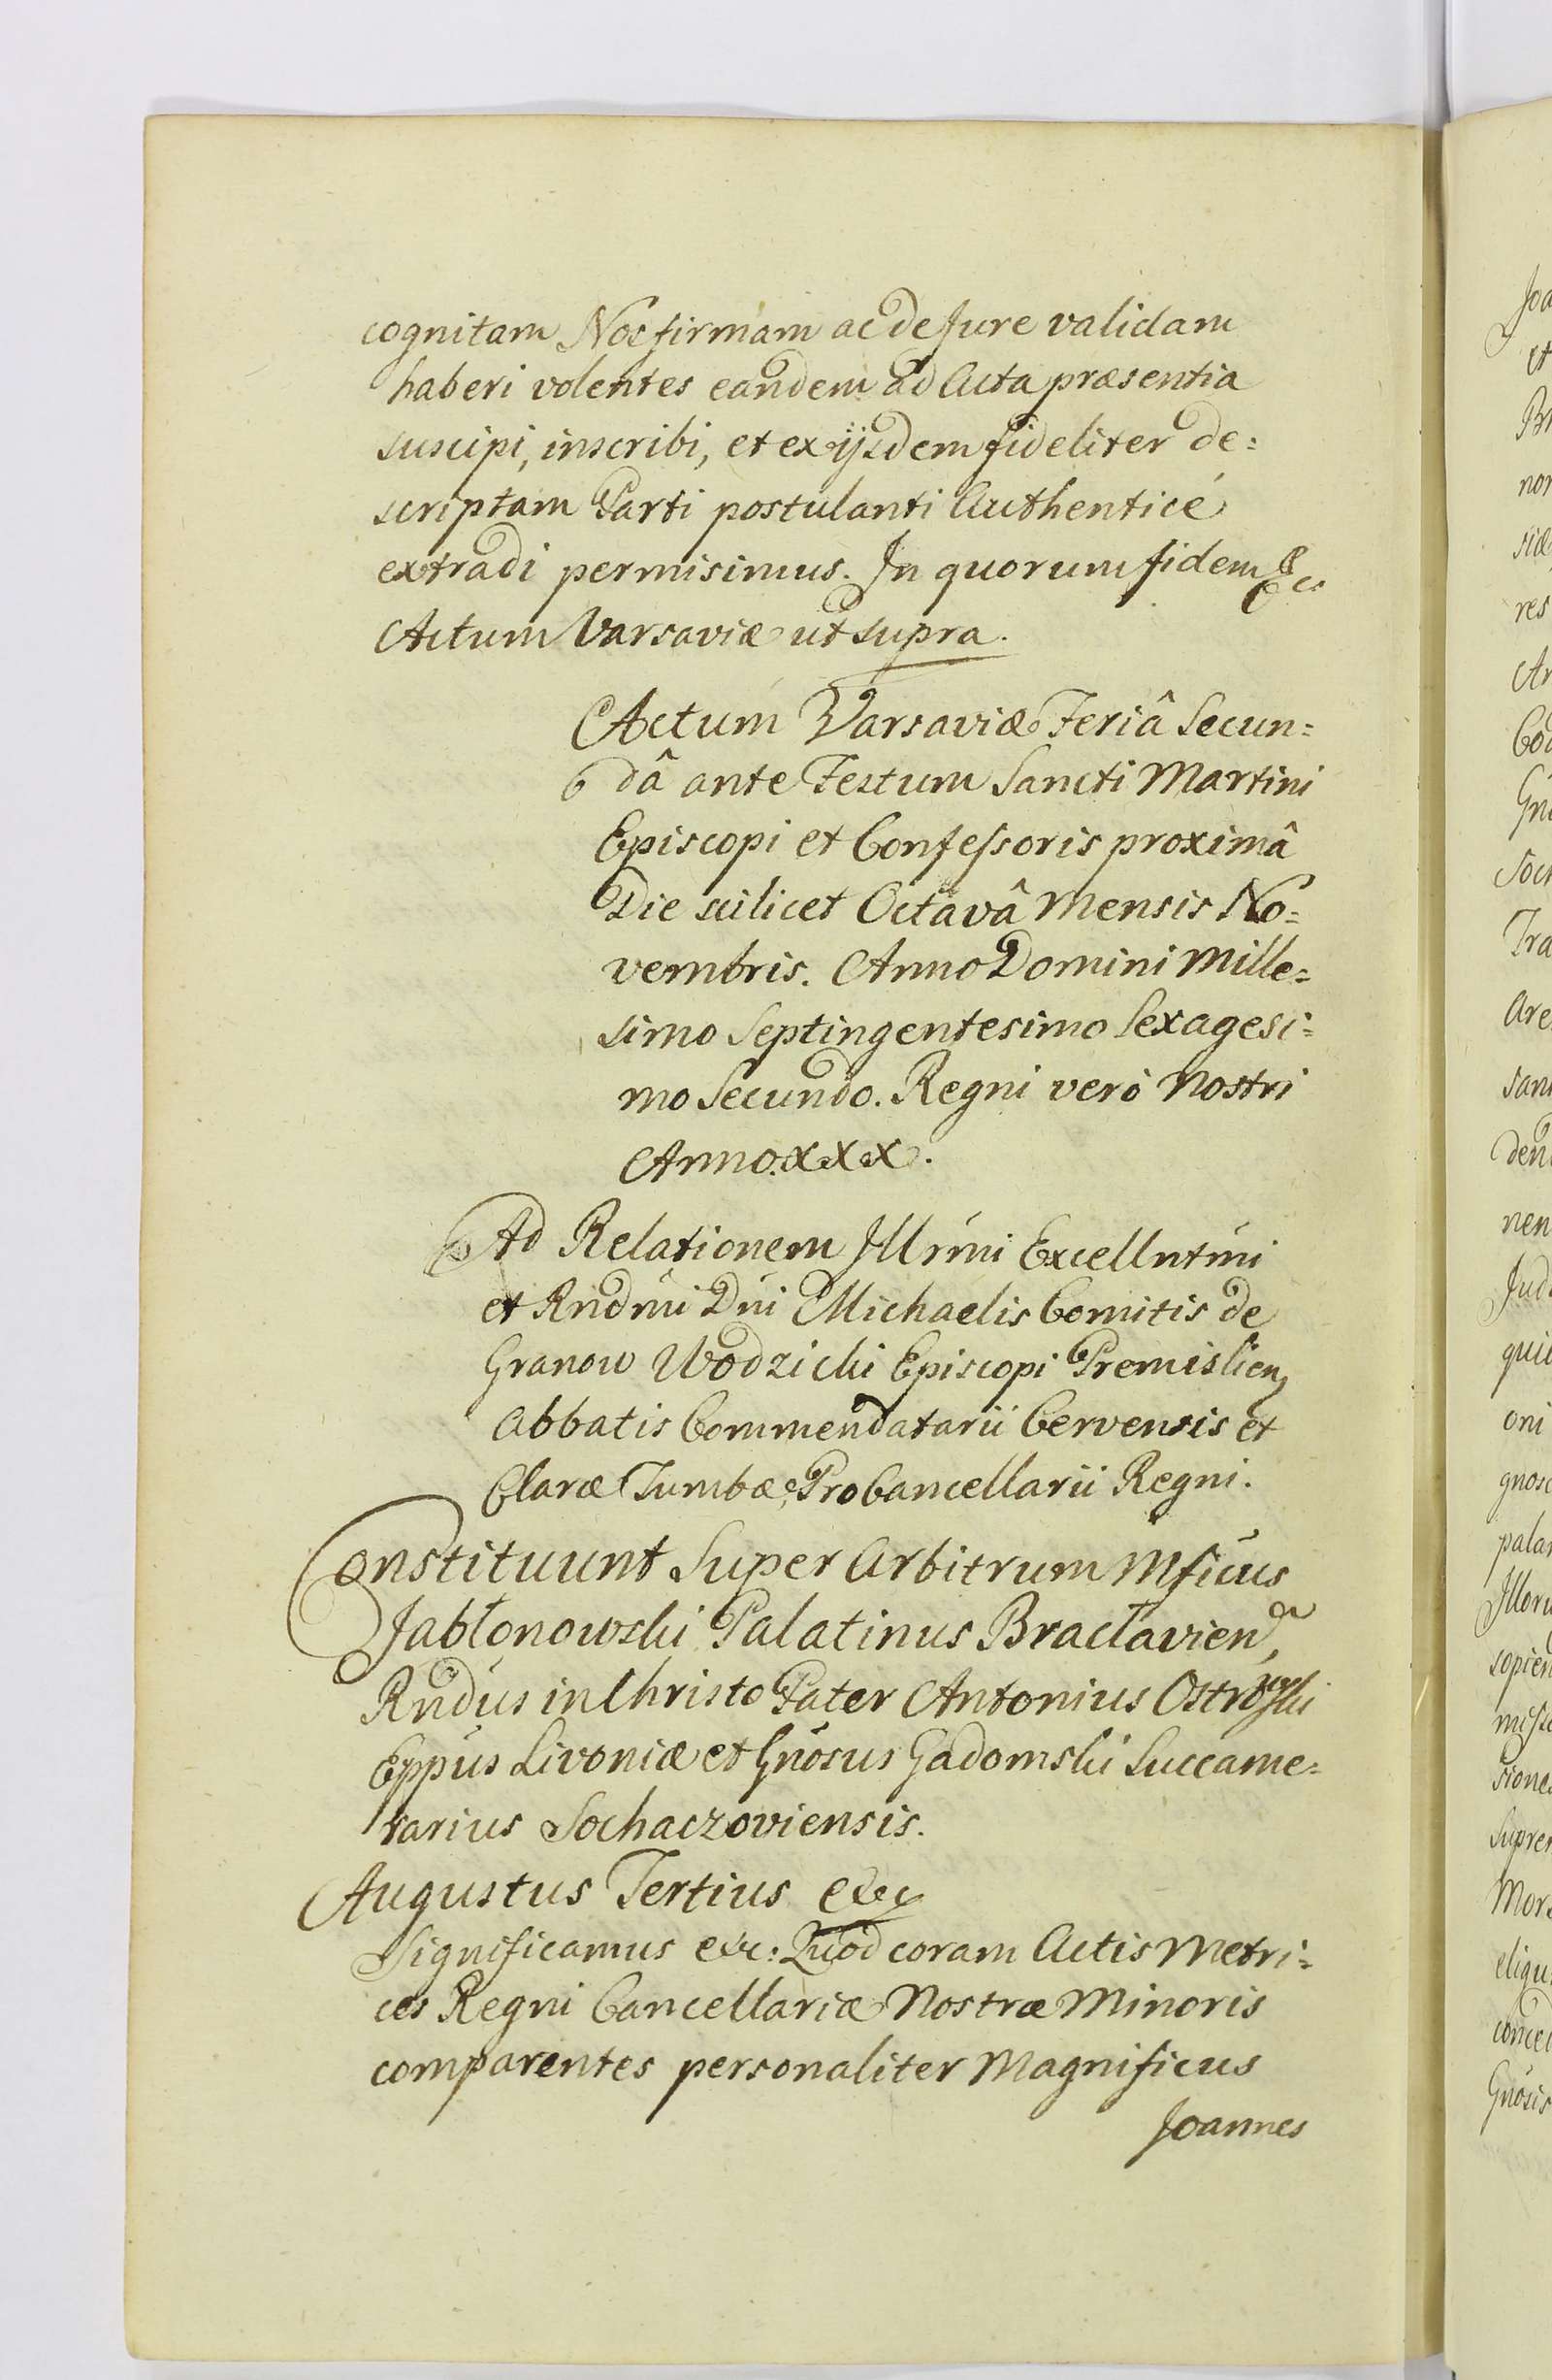 cognitam Nos firmam ac de Jure validam
haberi volentes eandem ad Acta præsentia
suscipi, inscribi, et ex ijsdem fideliter de=
scriptam Parti postulanti Authenticé
extradi permisimus. In quorum fidem &c
Actum Varsaviæ ut supra.
Actum Varsaviæ Feriâ Secun=
dâ ante Festum Sancti Martini
Episcopi et Confeſsoris proximâ
Die scilicet Octavâ Mensis No=
vembris. Anno Domini Mille=
simo Septingentesimo Sexagesi=
mo Secundo. Regni verò Nostri
Anno. XXX.
Ad Relationem Illrm̃i Excellntm̃i
et Rñdm̃i Dñi Michaelis Comitis de
Granow Wodzicki Episcopi Premislien,
Abbatis Commendatarii Cervensis et
Claræ Tumbæ, ProCancellarii Regni.
Constituunt Super Arbitrum Mficus
Jabłonowski Palatinus Bracłavien,
Rñdus in Christo Pater Antonius Ostrowski
Eppũs Livoniæ et Gñosus Gadomski Succame=
rarius Sochaczoviensis.
Augustus Tertius &c
Significamus &c: Quod coram Actis Metri=
ces Regni Cancellariæ Nostræ Minoris
comparentes personaliter Magnificus
Joannes
Joa
et
Br
nor
siæ
res
Ar
Cod
Gn
Soch
Tra
are
san
den
nen
Jud
qui
oni
gnosc
pala
Illoru
sopien
miſs
siones
Supre
Mor
eligu
conced
Gñosis